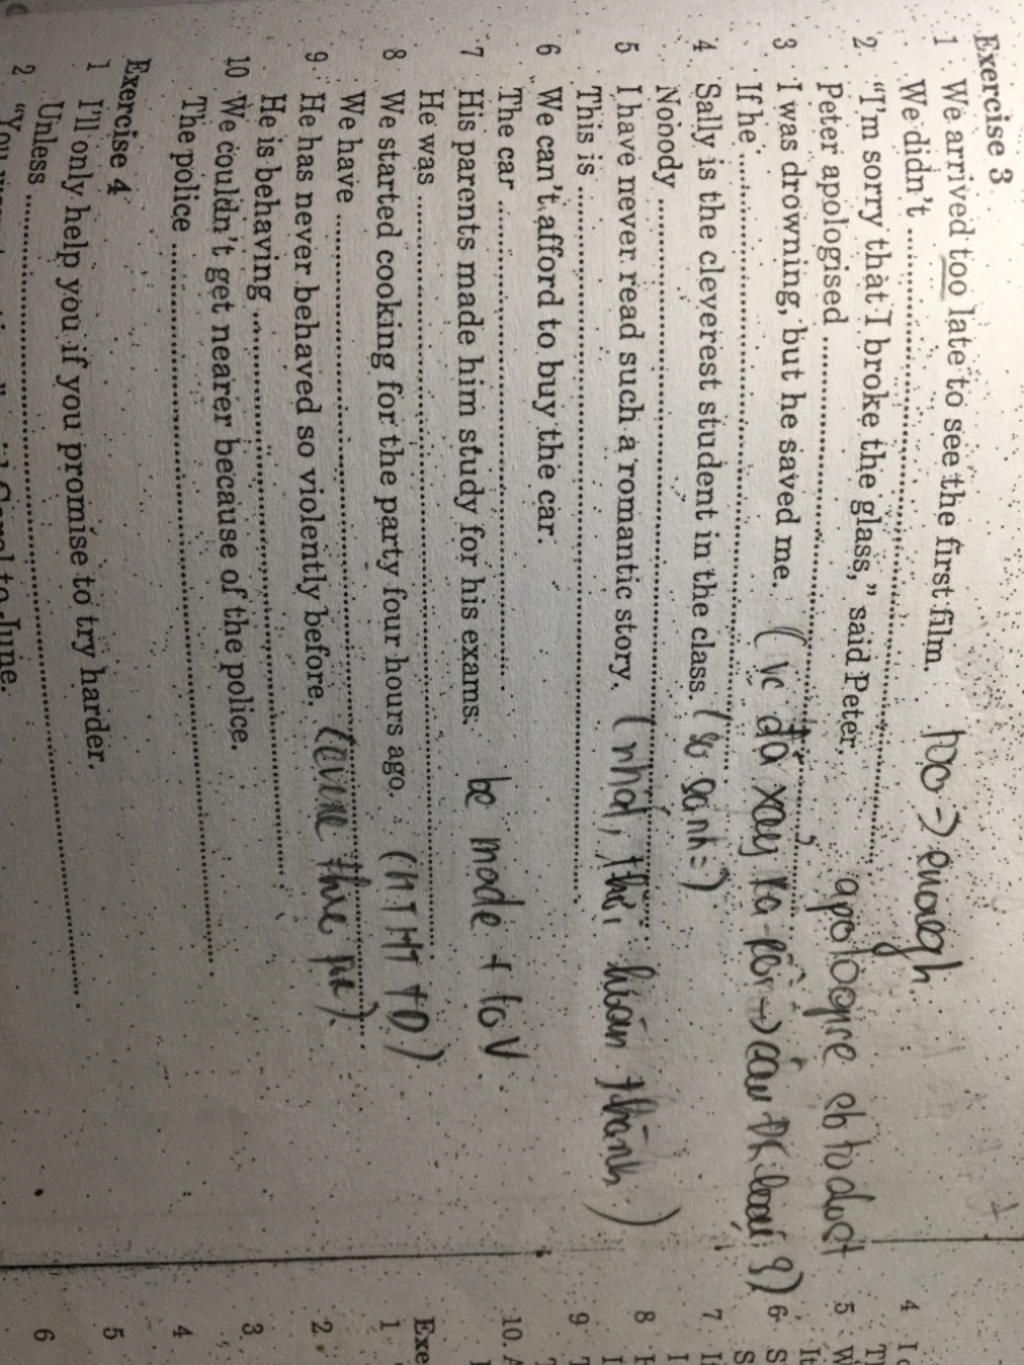 Exercise 3
1 We arrived too late to see the first film. too → enough
We didn't ..........
2 "I'm sorry that I broke the glass," said Peter.
Peter apologised .......... apologise sb to do st
3 I was drowning, but he saved me. (vc đã xảy ra rồi → câu ĐK loại 3)
If he ..........
4 Sally is the cleverest student in the class. (so sánh =)
Nobody ..........
5 I have never read such a romantic story. (nhất, thì hoàn thành)
This is ..........
6 We can't afford to buy the car.
The car ..........
7 His parents made him study for his exams. be made + to V
He was ..........
8 We started cooking for the party four hours ago. (HTHT TD)
We have ..........
9 He has never behaved so violently before.
He is behaving ..........
10 We couldn't get nearer because of the police.
The police ..........
Exercise 4
1 I'll only help you if you promise to try harder.
Unless ..........
2 "You
to June.
4 I
5 W
It
6 S
S
7 I
I
8
I
9
10. A
Exe
1
2
3
4
5
6